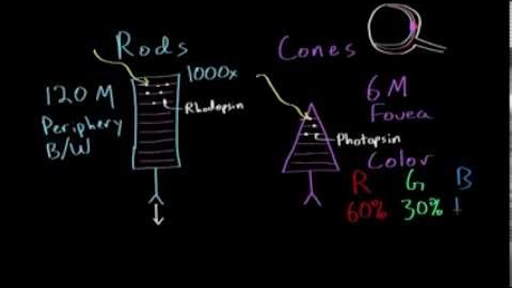 Rods
Cones
1000x
120 M
Periphery
B/W
Rhodopsin
6 M
Fovea
Photopsin
Color
R G B
60% 30%